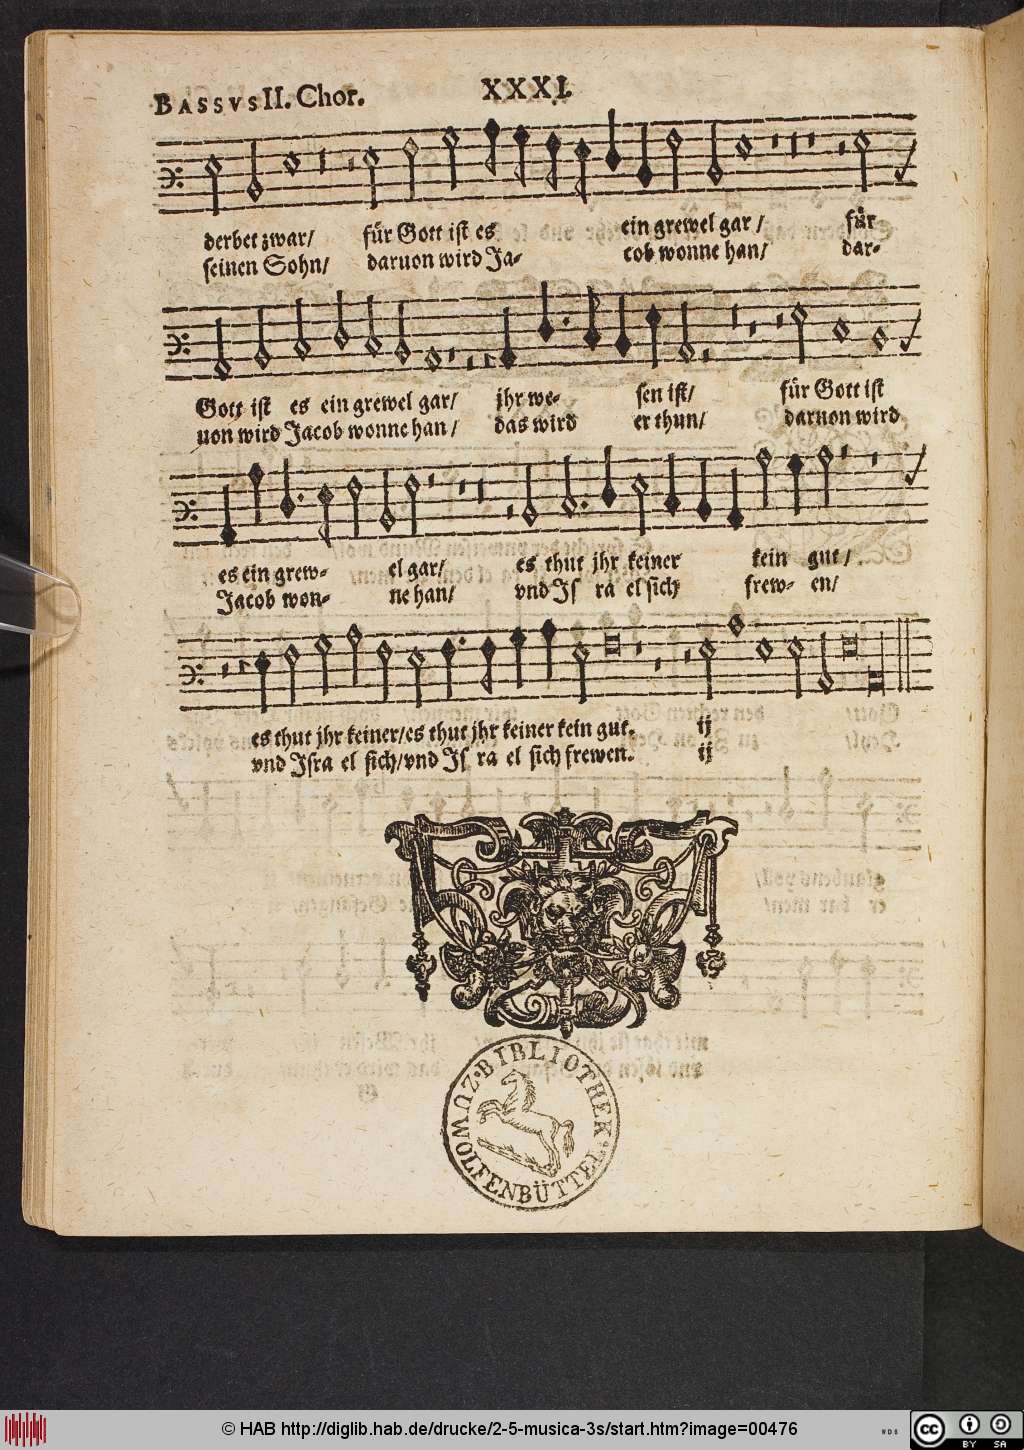 BASSVS II. Chor. XXXI.
derbet zwar/ für Gott ist es ein grewel gar / für
seinen Sohn/ daruon wird Ja- cob wonne han/ dar-
Gott ist es ein grewel gar/ jhr we- sen ist/ für Gott ist
uon wird Jacob wonne han / das wird er thun/ daruon wird
es ein grew- el gar/ es thut jhr keiner kein gut /
Jacob won- ne han/ vnd Is ra el sich frew- en/
es thut jhr keiner/es thut jhr keiner kein gut. ij
vnd Isra el sich/vnd Is ra el sich frewen. ij
BIBLIOTHEK
ZU WOLFENBÜTTEL
© HAB http://diglib.hab.de/drucke/2-5-musica-3s/start.htm?image=00476
cc BY SA